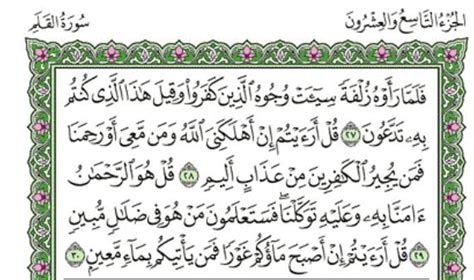 سُورَةُ القَلَمِ
الجُزْءُ التَّاسِعُ وَالعِشْرُونَ
فَلَمَّا رَأَوْهُ زُلْفَةً سِيٓـَٔتْ وُجُوهُ ٱلَّذِينَ كَفَرُوا۟ وَقِيلَ هَٰذَا ٱلَّذِى كُنتُم
بِهِۦ تَدَّعُونَ ٢٧ قُلْ أَرَءَيْتُمْ إِنْ أَهْلَكَنِىَ ٱللَّهُ وَمَن مَّعِىَ أَوْ رَحِمَنَا
فَمَن يُجِيرُ ٱلْكَٰفِرِينَ مِنْ عَذَابٍ أَلِيمٍ ٢٨ قُلْ هُوَ ٱلرَّحْمَٰنُ
ءَامَنَّا بِهِۦ وَعَلَيْهِ تَوَكَّلْنَا ۖ فَسَتَعْلَمُونَ مَنْ هُوَ فِى ضَلَٰلٍ مُّبِينٍ
٢٩ قُلْ أَرَءَيْتُمْ إِنْ أَصْبَحَ مَآؤُكُمْ غَوْرًا فَمَن يَأْتِيكُم بِمَآءٍ مَّعِينٍۭ ٣٠